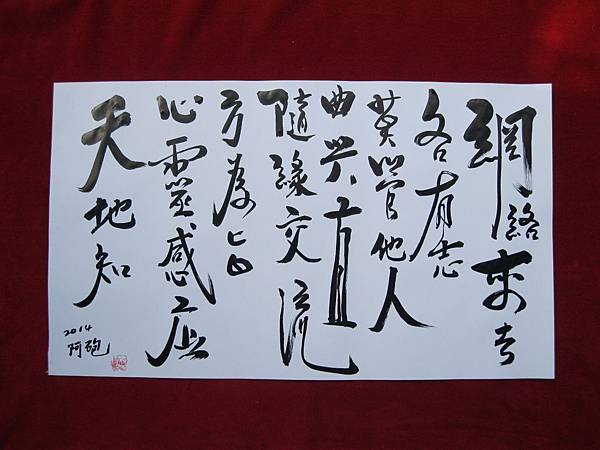 網絡來去
各有志
莫管他人
曲與直
隨緣交流
方為
心靈感應
天地知
2014
阿砲